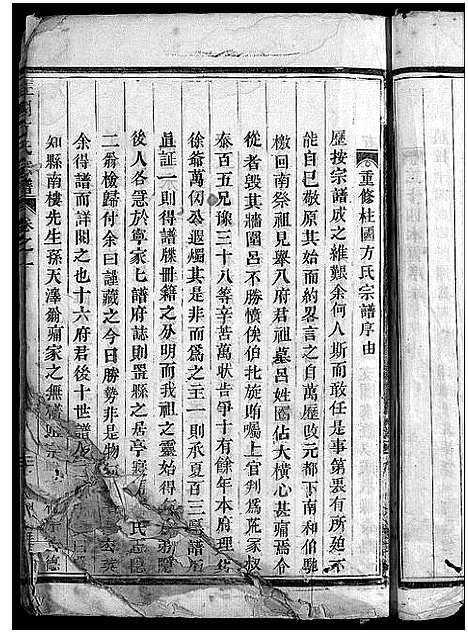 重修柱國方氏宗譜序由
歷按宗譜成之維艱余何人斯而敢任是事第畏有所廹不
能自已敬原其始而約畧言之自萬歷改元都下南和伯馳
檄回南祭祖見舉八府君祖墓呂姓圖佔大橫心甚痛焉令
從者毁其牆圍呂不勝憤俟伯北旋賄囑上官判為荒冢叔
泰百五兄豫三十八等辛苦萬狀告爭十有餘年本府理
徐爺萬仞公遐燭其是非而為之主一則承夏百三 譜
眞証一則得譜牒冊籍之分明而我祖之靈始得
後人各急於寧家七譜府誌則置縣之居亭 氏
二翁檢歸付余曰謹藏之今日勝勢非是物 去
余得譜而詳閱之也十六府君後十世譜
知縣南樓先生孫天澤翁痛家之無
宗譜 卷之一